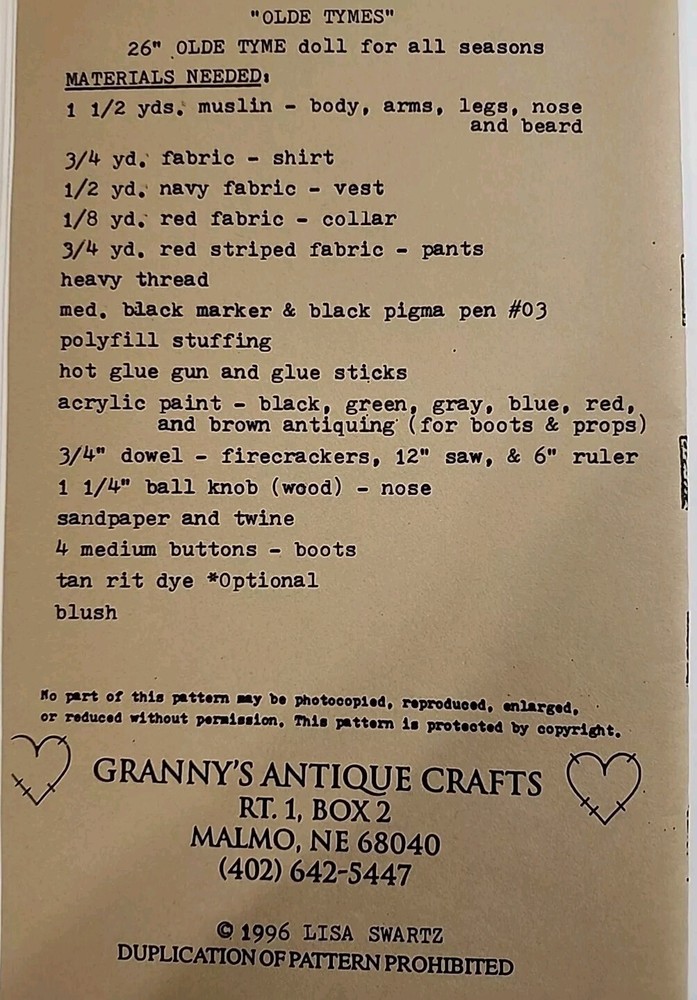 "OLDE TYMES"
26" OLDE TYME doll for all seasons
MATERIALS NEEDED:
1 1/2 yds. muslin - body, arms, legs, nose
and beard
3/4 yd. fabric - shirt
1/2 yd. navy fabric - vest
1/8 yd. red fabric - collar
3/4 yd. red striped fabric - pants
heavy thread
med. black marker & black pigma pen #03
polyfill stuffing
hot glue gun and glue sticks
acrylic paint - black, green, gray, blue, red,
and brown antiquing (for boots & props)
3/4" dowel - firecrackers, 12" saw, & 6" ruler
1 1/4" ball knob (wood) - nose
sandpaper and twine
4 medium buttons - boots
tan rit dye *Optional
blush
No part of this pattern may be photocopied, reproduced, enlarged,
or reduced without permission. This pattern is protected by copyright.
GRANNY'S ANTIQUE CRAFTS
RT. 1, BOX 2
MALMO, NE 68040
(402) 642-5447
© 1996 LISA SWARTZ
DUPLICATION OF PATTERN PROHIBITED